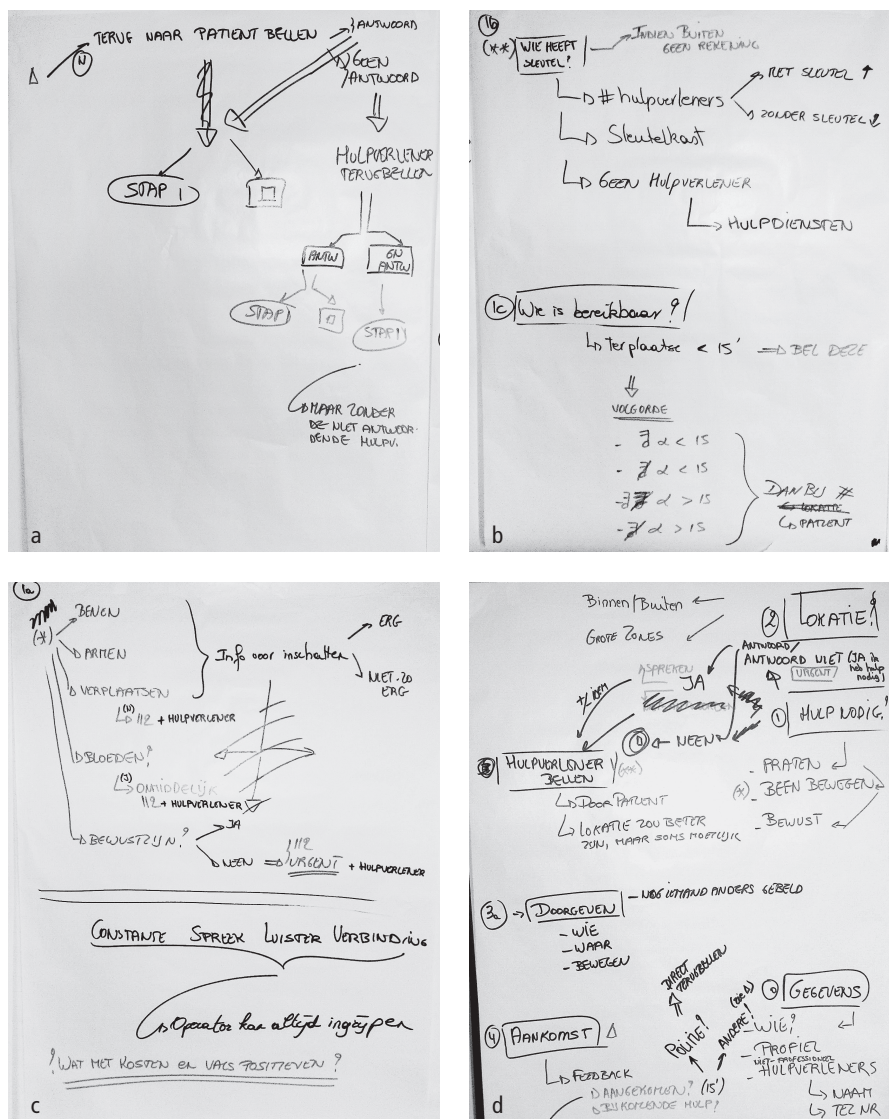 TERUG NAAR PATIENT BELLEN
ANTWOORD
N
GEEN
ANTWOORD
HULPVERLENER
TERUGBELLEN
STAP 1
ANTW
GN
ANTW
STAP 1
STAP 1
MAAR ZONDER
DE NIET ANTWOOR-
DENDE HULPV.
a
1b
(**) WIE HEEFT
SLEUTEL?
INDIEN BUITEN
GEEN REKENING
# hulpverleners
MET SLEUTEL
ZONDER SLEUTEL
Sleutelkast
GEEN HULPVERLENER
HULPDIENSTEN
1c Wie is bereikbaar?
Ter plaatse < 15'
BEL DEZE
VOLGORDE
< 15
< 15
> 15
> 15
DAN BIJ #
LOKATIE
PATIENT
b
1a
(*)
BENEN
ARMEN
VERPLAATSEN
Info voor inschatten
ERG
NIET ZO
ERG
(N)
112 + HULPVERLENER
BLOEDEN?
(J)
ONMIDDELIJK
112 + HULPVERLENER
BEWUSTZIJN?
JA
NEEN
112
URGENT + HULPVERLENER
CONSTANTE SPREEK LUISTER VERBINDING
Operator kan altijd ingrijpen
? WAT MET KOSTEN EN VALS POSITIEVEN ?
c
Binnen/Buiten
GROTE ZONES
2 LOKATIE?
ANTWOORD/
ANTWOORD NIET (JA ik
heb hulp
nodig)
URGENT
SPREKEN
JA
+/- IDEM
1 HULP NODIG?
NEEN
HULPVERLENER
BELLEN
(**)
DOOR PATIENT
LOKATIE ZOU BETER
ZIJN, MAAR SOMS MOEILIJK
- PRATEN
(*) - BEEN BEWEGEN
- BEWUST
3a DOORGEVEN
- NOG IEMAND ANDERS GEBELD
- WIE
- WAAR
- BEWEGEN
4 AANKOMST
FEEDBACK
AANGEKOMEN?
BIJKOMENDE HULP?
(15')
POLITIE?
DIRECT
TERUGBELLEN
ANDERE!
(zie Δ)
0 GEGEVENS
- WIE?
- PROFIEL
NIET-PROFESSIONEEL
- HULPVERLENERS
NAAM
TEL NR
d